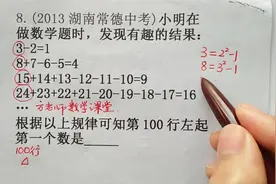 8.(2013湖南常德中考)小明在
做数学题时,发现有趣的结果:
3-2=1
8+7-6-5=4
15+14+13-12-11-10=9
24+23+22+21-20-19-18-17=16
... 方老师数学课堂
根据以上规律可知第100行左起
第一个数是____
100行
3=2²-1
8=3²-1